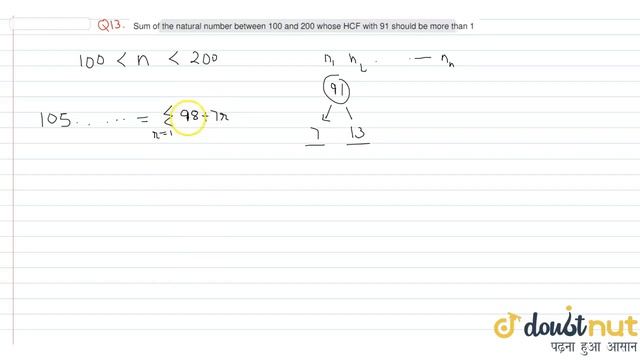 Q13. Sum of the natural number between 100 and 200 whose HCF with 91 should be more than 1
100 < n < 200
n₁ n₂ . . — nₙ
91
105 . . . . . . = Σ 98+7r
r=1
7 13
doubtnut
पढ़ना हुआ आसान